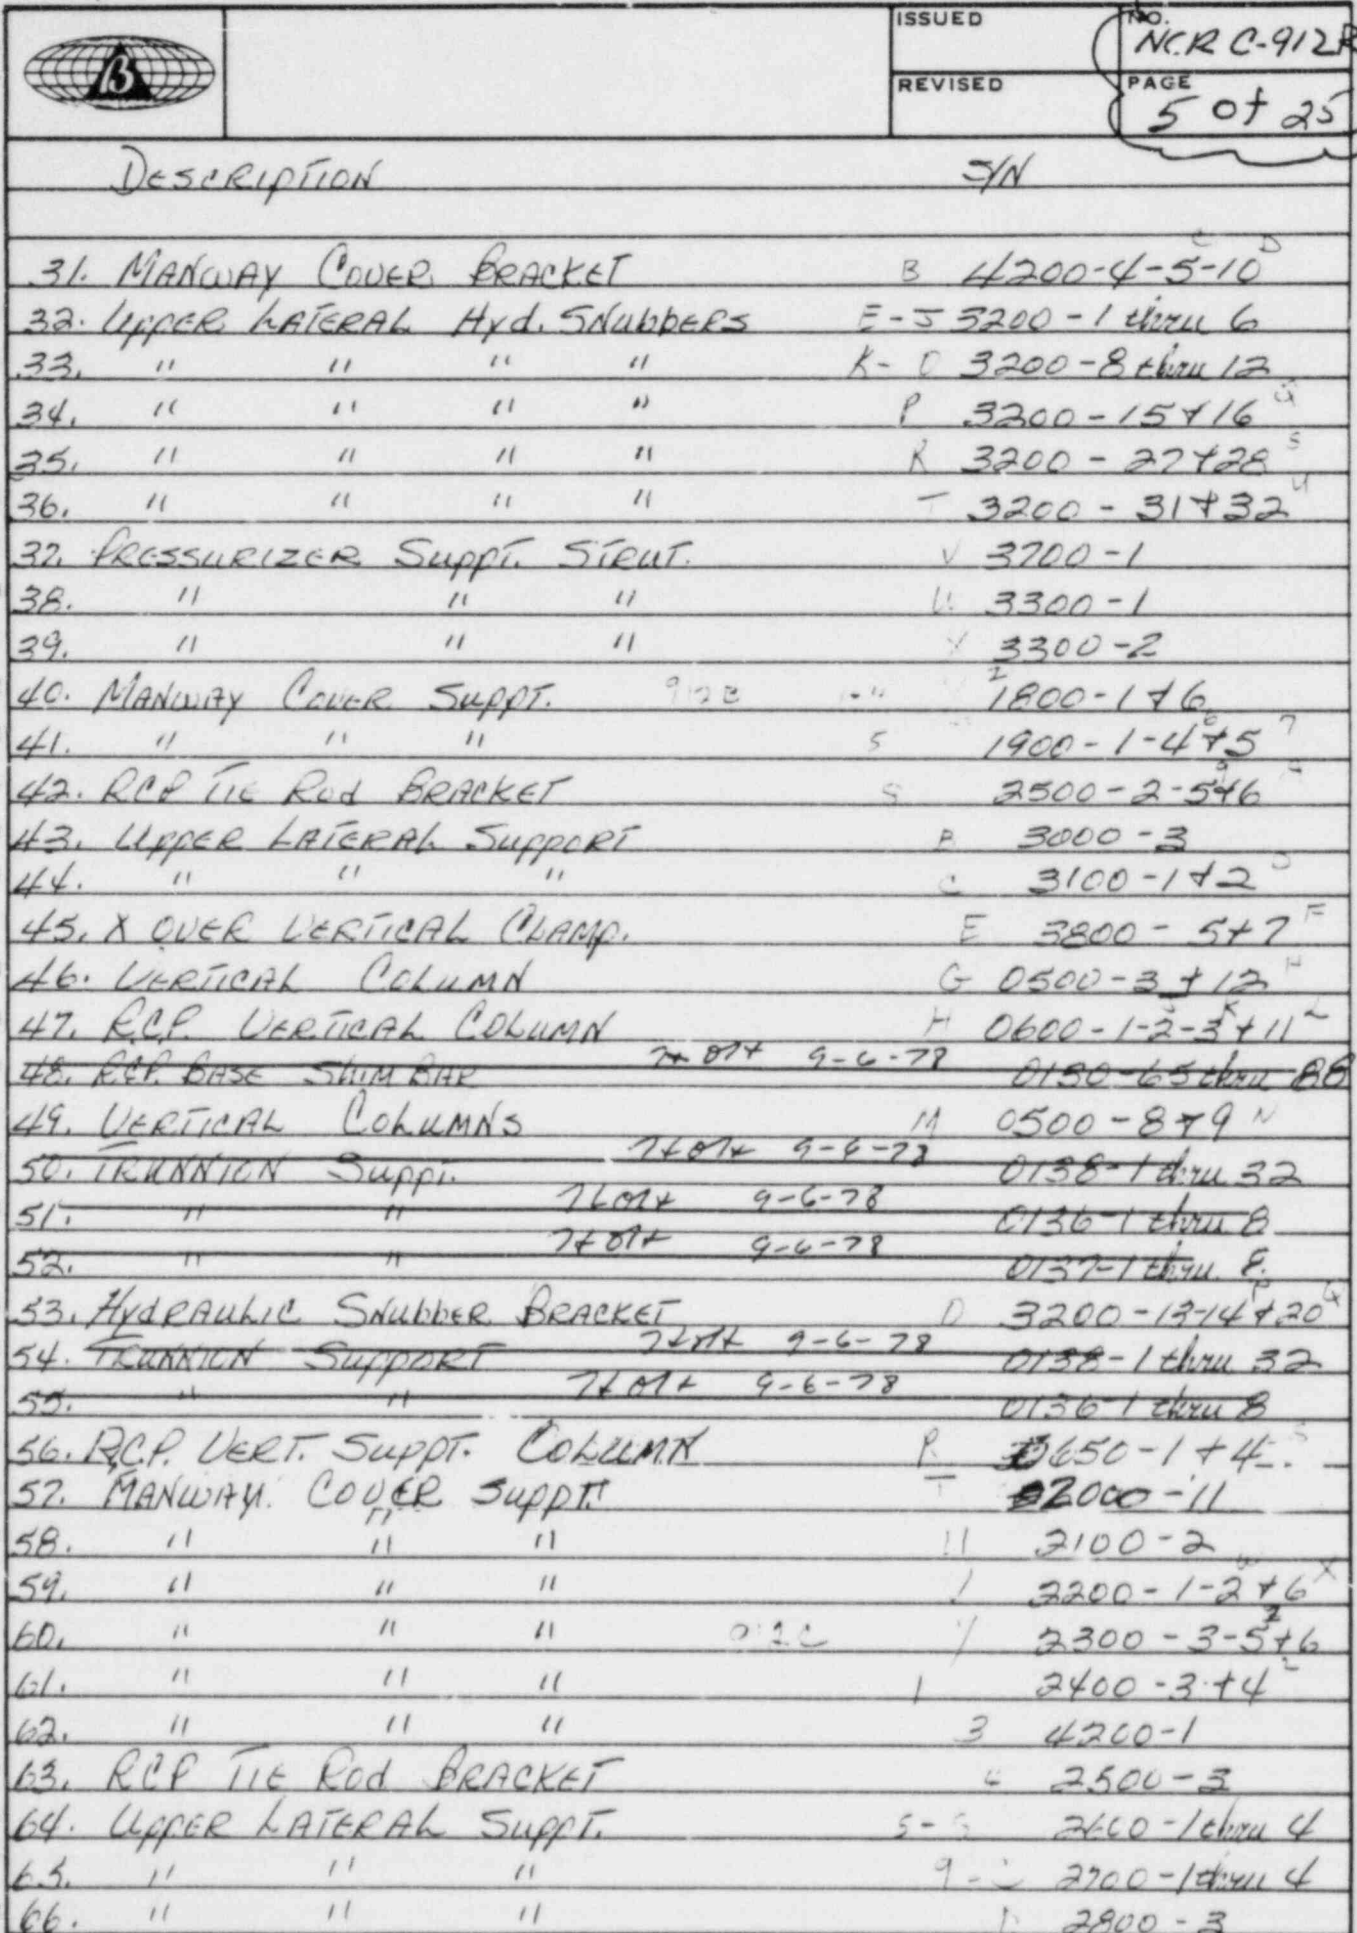 ISSUED
NO.
NCR C-912R
REVISED
PAGE
5 of 25
DESCRIPTION S/N
31. MANWAY COVER BRACKET B 4200-4-5-10 C D
32. UPPER LATERAL Hyd. SNUBBERS E-J 3200-1 thru 6
33. " " " " K-O 3200-8 thru 12
34. " " " " P 3200-15+16 Q
35. " " " " R 3200-27+28 S
36. " " " " T 3200-31+32 U
37. PRESSURIZER SUPPT. STRUT. V 3700-1
38. " " " W 3300-1
39. " " " 3300-2
40. MANWAY COVER SUPPT. 912B 1800-1+6
41. " " " 5 1900-1-4+5 6 7
42. RCP TIE Rod BRACKET 2500-2-5+6 9
43. UPPER LATERAL SUPPORT B 3000-3
44. " " " C 3100-1+2 D
45. X OVER VERTICAL CLAMP. E 3800-5+7 F
46. VERTICAL COLUMN G 0500-3+12 H
47. R.C.P. VERTICAL COLUMN H 0600-1-2-3+11 J K L
48. RCP. BASE SHIM BAR 9-6-78 0130-65 thru 88
49. VERTICAL COLUMNS M 0500-8+9 N
50. TRUNNION SUPPT. 9-6-78 0138-1 thru 32
51. " " 9-6-78 0136-1 thru 8
52. " " 9-6-78 0137-1 thru 8.
53. HYDRAULIC SNUBBER BRACKET O 3200-13-14+20 P Q
54. TRUNNION SUPPORT 9-6-78 0138-1 thru 32
55. " " 9-6-78 0136-1 thru 8
56. R.C.P. VERT. SUPPT. COLUMN R 0650-1+4 S
57. MANWAY COVER SUPPT. T 2000-11
58. " " " U 2100-2
59. " " " 2200-1-2+6 W X
60. " " " 912C Y 2300-3-5+6 Z
61. " " " 1 2400-3+4 2
62. " " " 3 4200-1
63. RCP TIE Rod BRACKET 4 2500-3
64. UPPER LATERAL SUPPT. 2600-1 thru 4
65. " " " 2700-1 thru 4
66. " " " D 2800-3